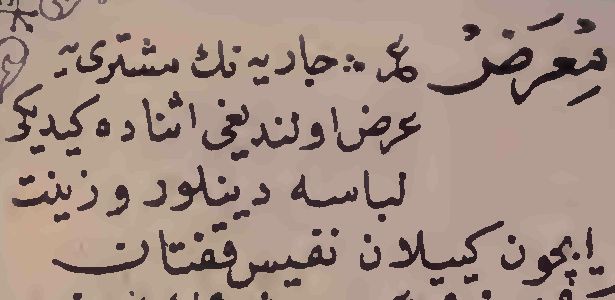 مِعْرَضْ عر جاریه نك مشتری یه
عرض اولندیغی اثناده کیدیکی
لباسه دینلور و زینت
ایچون کییلان نفیس قفتان